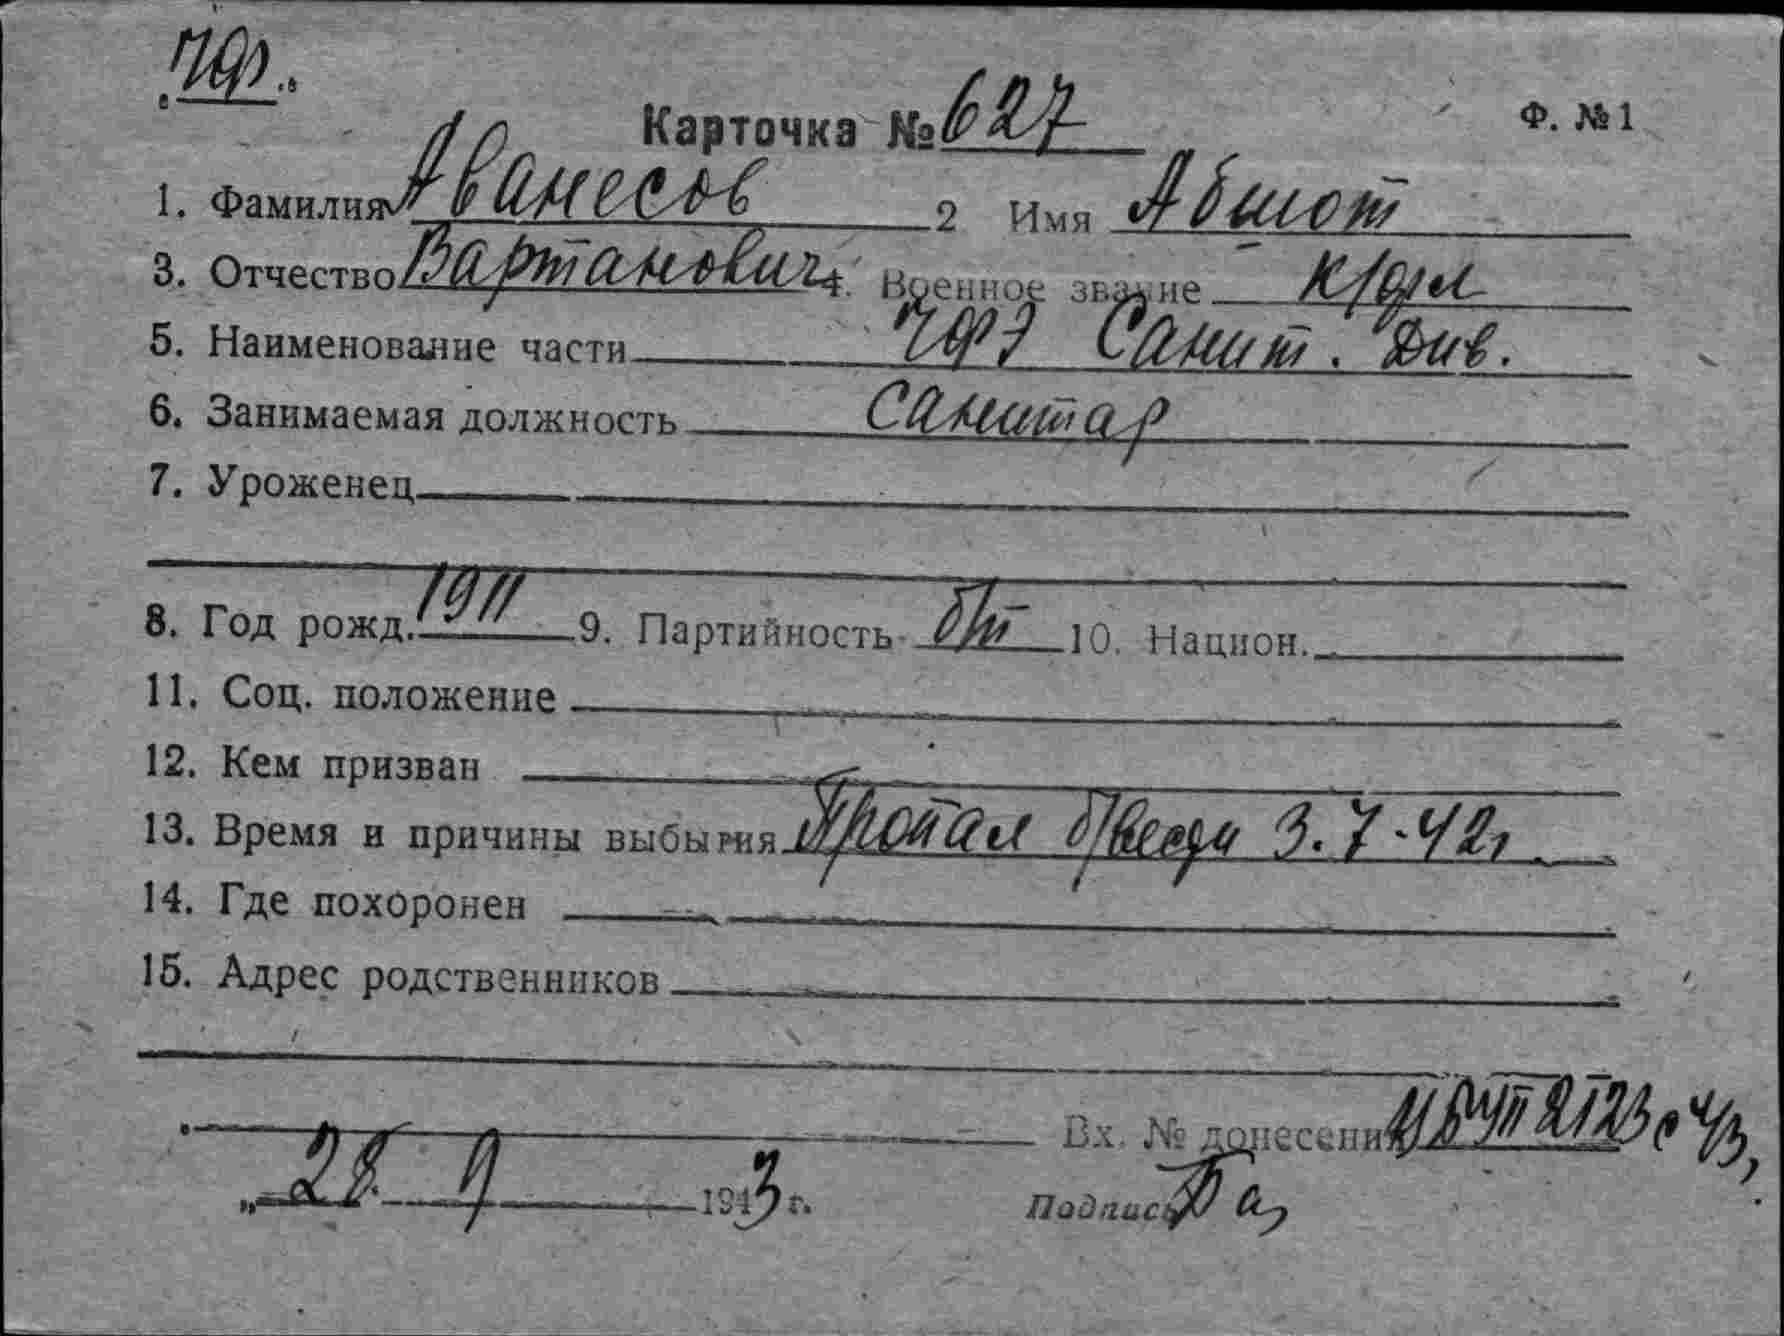 ЧФ
Карточка № 627 Ф. № 1
1. Фамилия Аванесов 2 Имя Абшот
3. Отчество Вартанович 4. Военное звание к/фл
5. Наименование части ЧФ Санит. Див.
6. Занимаемая должность санитар
7. Уроженец
8. Год рожд. 1911 9. Партийность б/п 10. Национ.
11. Соц. положение
12. Кем призван
13. Время и причины выбытия Пропал б/вести 3.7-42г
14. Где похоронен
15. Адрес родственников
Вх. № донесения 2123
„ 28 9 1943 г. Подпись